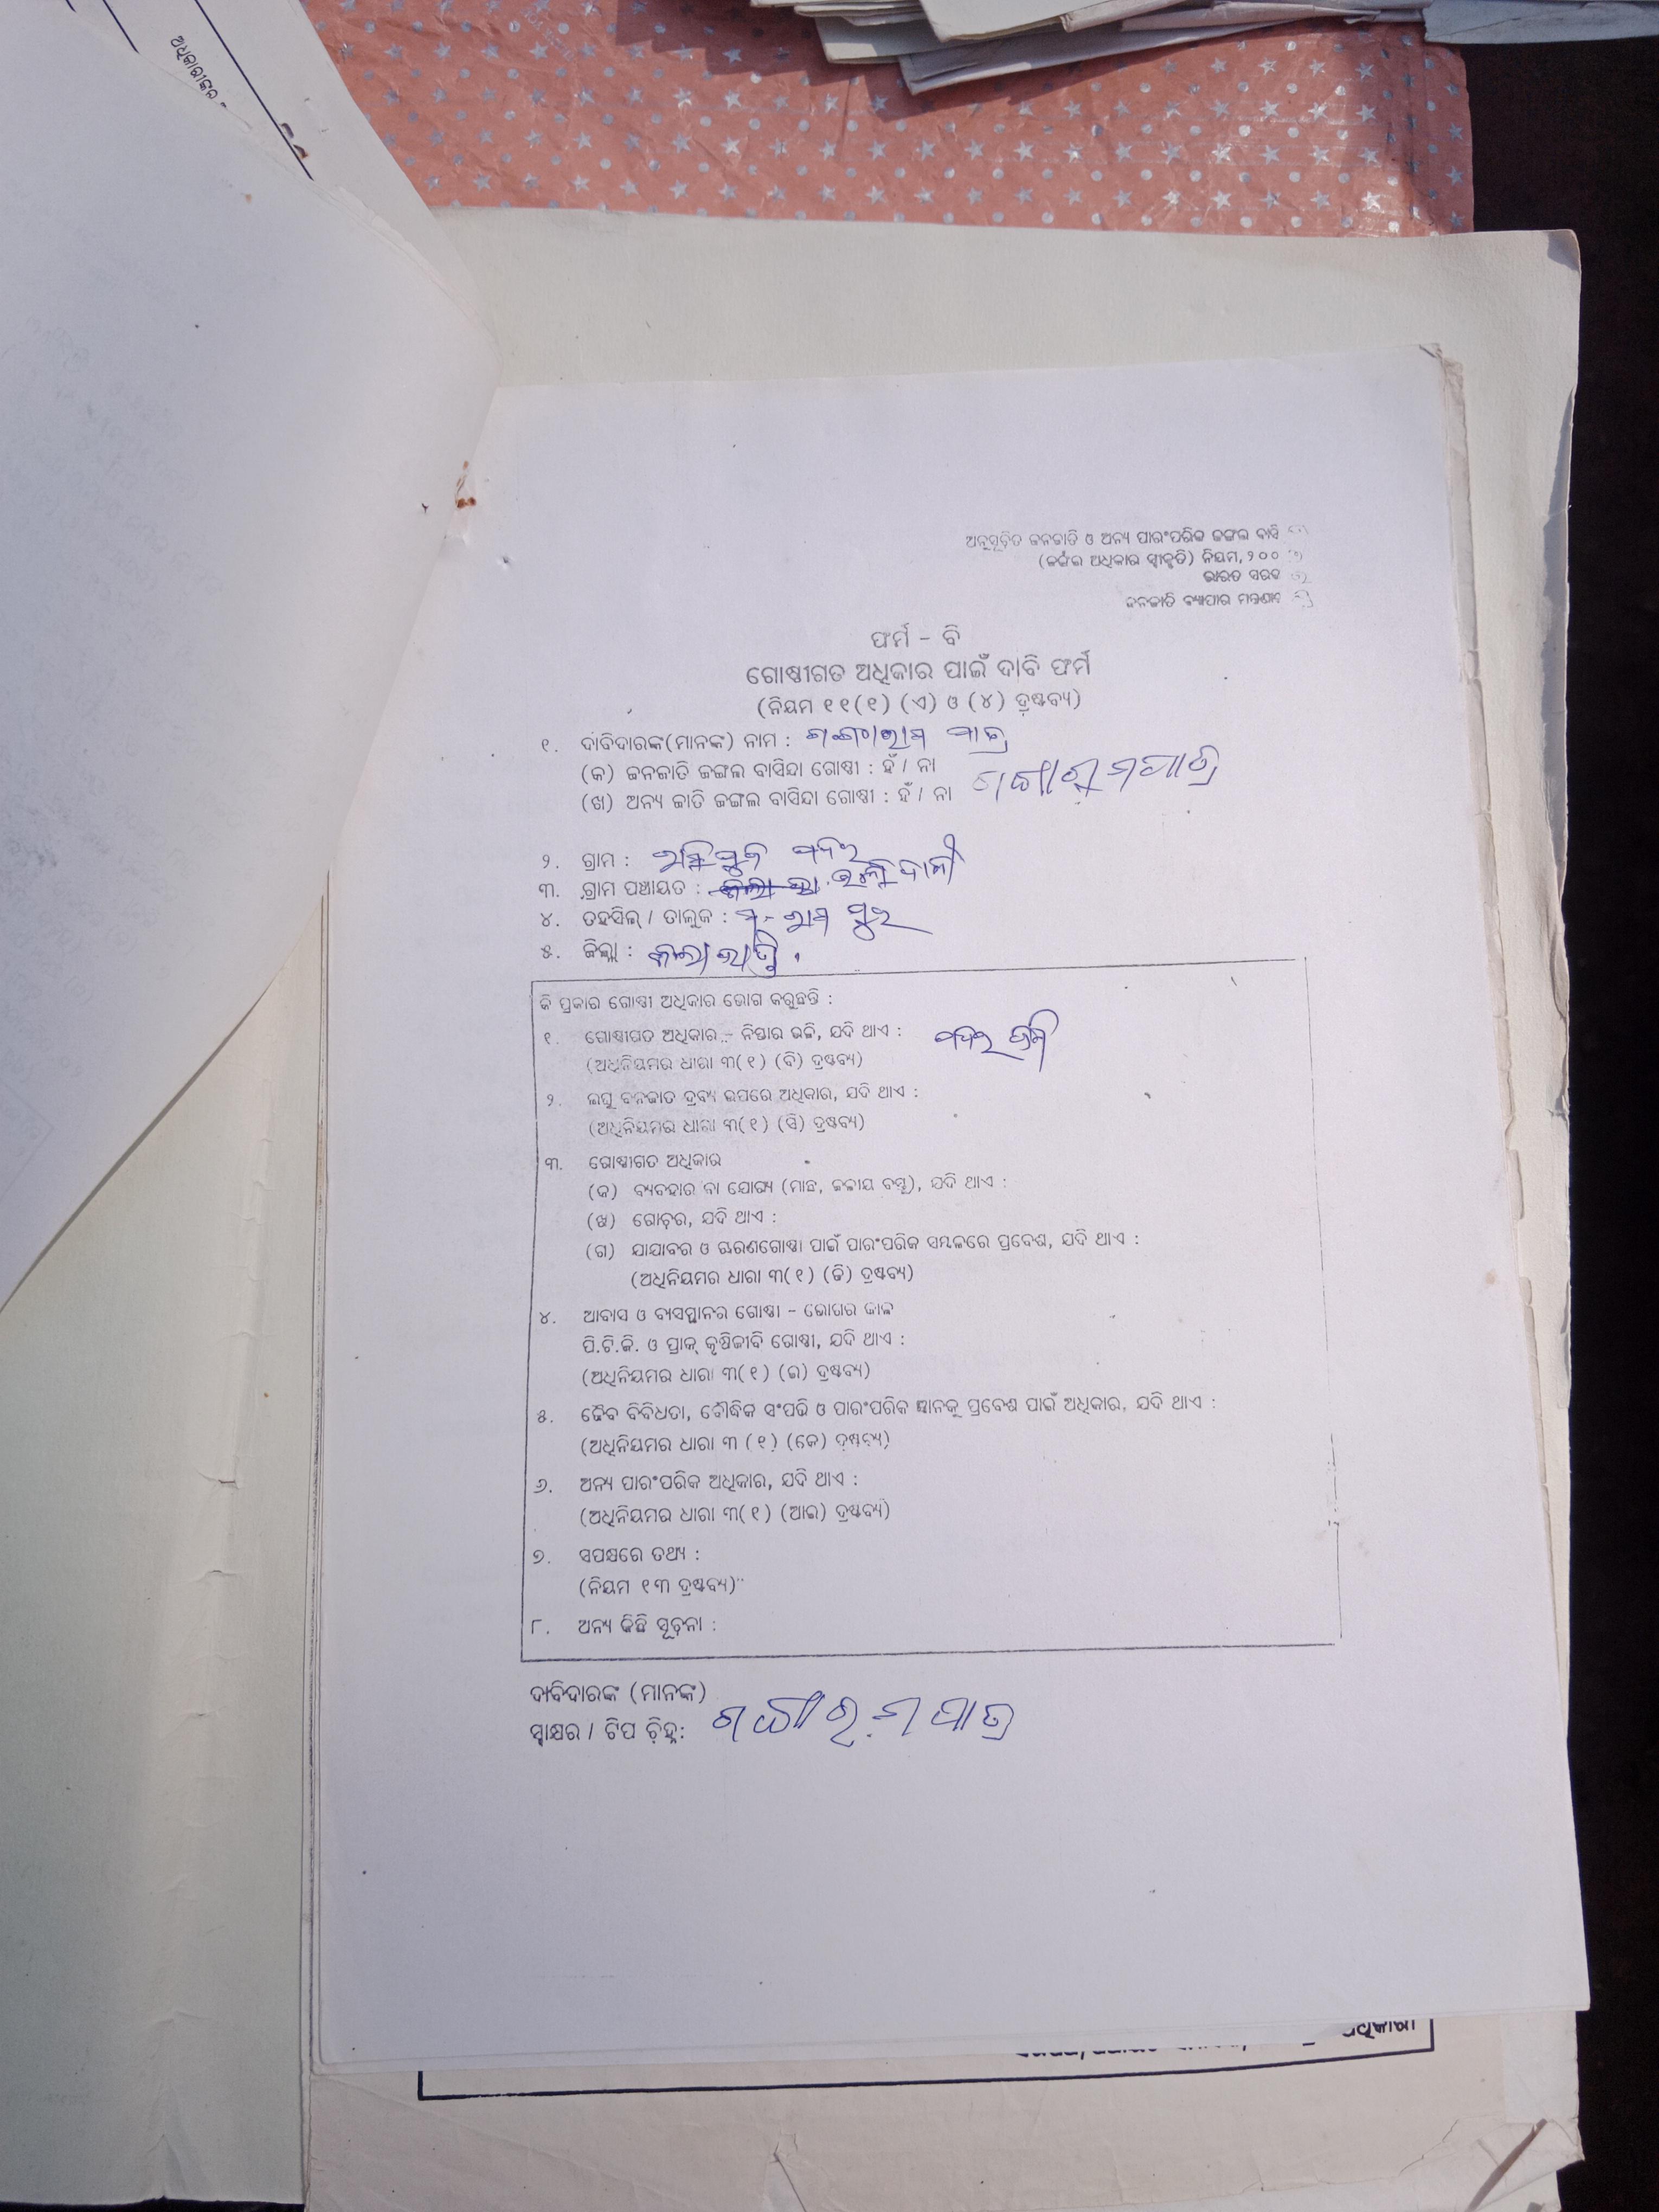 ଅଧିକାରୀଙ୍କର
ଅନୁସୂଚିତ ଜନଜାତି ଓ ଅନ୍ୟ ପାରଂପରିକ ଜଙ୍ଗଲ ବାସି
(ଜଙ୍ଗଲ ଅଧିକାର ସ୍ୱୀକୃତି) ନିୟମ, ୨୦୦
ଭାରତ ସରକ
ଜନଜାତି ବ୍ୟାପାର ମନ୍ତ୍ରଣାଳ
ଫର୍ମ - ବି
ଗୋଷ୍ଠୀଗତ ଅଧିକାର ପାଇଁ ଦାବି ଫର୍ମ
(ନିୟମ ୧୧(୧) (ଏ) ଓ (୪) ଦ୍ରଷ୍ଟବ୍ୟ)
୧. ଦାବିଦାରଙ୍କ(ମାନଙ୍କ) ନାମ : ଗଙ୍ଗାରାମ ପାତ୍ର
(କ) ଜନଜାତି ଜଙ୍ଗଲ ବାସିନ୍ଦା ଗୋଷ୍ଠୀ : ହଁ / ନା ଗଙ୍ଗାରାମ ପାତ୍ର
(ଖ) ଅନ୍ୟ ଜାତି ଜଙ୍ଗଲ ବାସିନ୍ଦା ଗୋଷ୍ଠୀ : ହଁ / ନା
୨. ଗ୍ରାମ :
୩. ଗ୍ରାମ ପଞ୍ଚାୟତ :
୪. ତହସିଲ୍ / ତାଲୁକ : ମ. ରାମପୁର
୫. ଜିଲ୍ଲା : କଳାହାଣ୍ଡି .
କି ପ୍ରକାର ଗୋଷ୍ଠୀ ଅଧିକାର ଭୋଗ କରୁଛନ୍ତି :
୧. ଗୋଷ୍ଠୀଗତ ଅଧିକାର - ନିସ୍ତାର ଭଳି, ଯଦି ଥାଏ :
(ଅଧିନିୟମର ଧାରା ୩(୧) (ବି) ଦ୍ରଷ୍ଟବ୍ୟ)
୨. ଲଘୁ ବନଜାତ ଦ୍ରବ୍ୟ ଉପରେ ଅଧିକାର, ଯଦି ଥାଏ :
(ଅଧିନିୟମର ଧାରା ୩(୧) (ସି) ଦ୍ରଷ୍ଟବ୍ୟ)
୩. ଗୋଷ୍ଠୀଗତ ଅଧିକାର
(କ) ବ୍ୟବହାର ବା ଯୋଗ୍ୟ (ମାଛ, ଜଳୀୟ ବସ୍ତୁ), ଯଦି ଥାଏ :
(ଖ) ଗୋଚର, ଯଦି ଥାଏ :
(ଗ) ଯାଯାବର ଓ ଚାରଣଗୋଷ୍ଠୀ ପାଇଁ ପାରଂପରିକ ସମ୍ବଳରେ ପ୍ରବେଶ, ଯଦି ଥାଏ :
(ଅଧିନିୟମର ଧାରା ୩(୧) (ଡି) ଦ୍ରଷ୍ଟବ୍ୟ)
୪. ଆବାସ ଓ ବାସସ୍ଥାନର ଗୋଷ୍ଠୀ - ଭୋଗର କାଳ
ପି.ଟି.ଜି. ଓ ପ୍ରାକ୍ କୃଷିଜୀବି ଗୋଷ୍ଠୀ, ଯଦି ଥାଏ :
(ଅଧିନିୟମର ଧାରା ୩(୧) (ଇ) ଦ୍ରଷ୍ଟବ୍ୟ)
୫. ଜୈବ ବିବିଧତା, ବୌଦ୍ଧିକ ସଂପତ୍ତି ଓ ପାରଂପରିକ ଜ୍ଞାନକୁ ପ୍ରବେଶ ପାଇଁ ଅଧିକାର, ଯଦି ଥାଏ :
(ଅଧିନିୟମର ଧାରା ୩ (୧) (କେ) ଦ୍ରଷ୍ଟବ୍ୟ)
୬. ଅନ୍ୟ ପାରଂପରିକ ଅଧିକାର, ଯଦି ଥାଏ :
(ଅଧିନିୟମର ଧାରା ୩(୧) (ଆଇ) ଦ୍ରଷ୍ଟବ୍ୟ)
୭. ସପକ୍ଷରେ ତଥ୍ୟ :
(ନିୟମ ୧୩ ଦ୍ରଷ୍ଟବ୍ୟ)
୮. ଅନ୍ୟ କିଛି ସୂଚନା :
ଦାବିଦାରଙ୍କ (ମାନଙ୍କ)
ସ୍ୱାକ୍ଷର / ଟିପ ଚିହ୍ନ: ଗଙ୍ଗାରାମ ପାତ୍ର